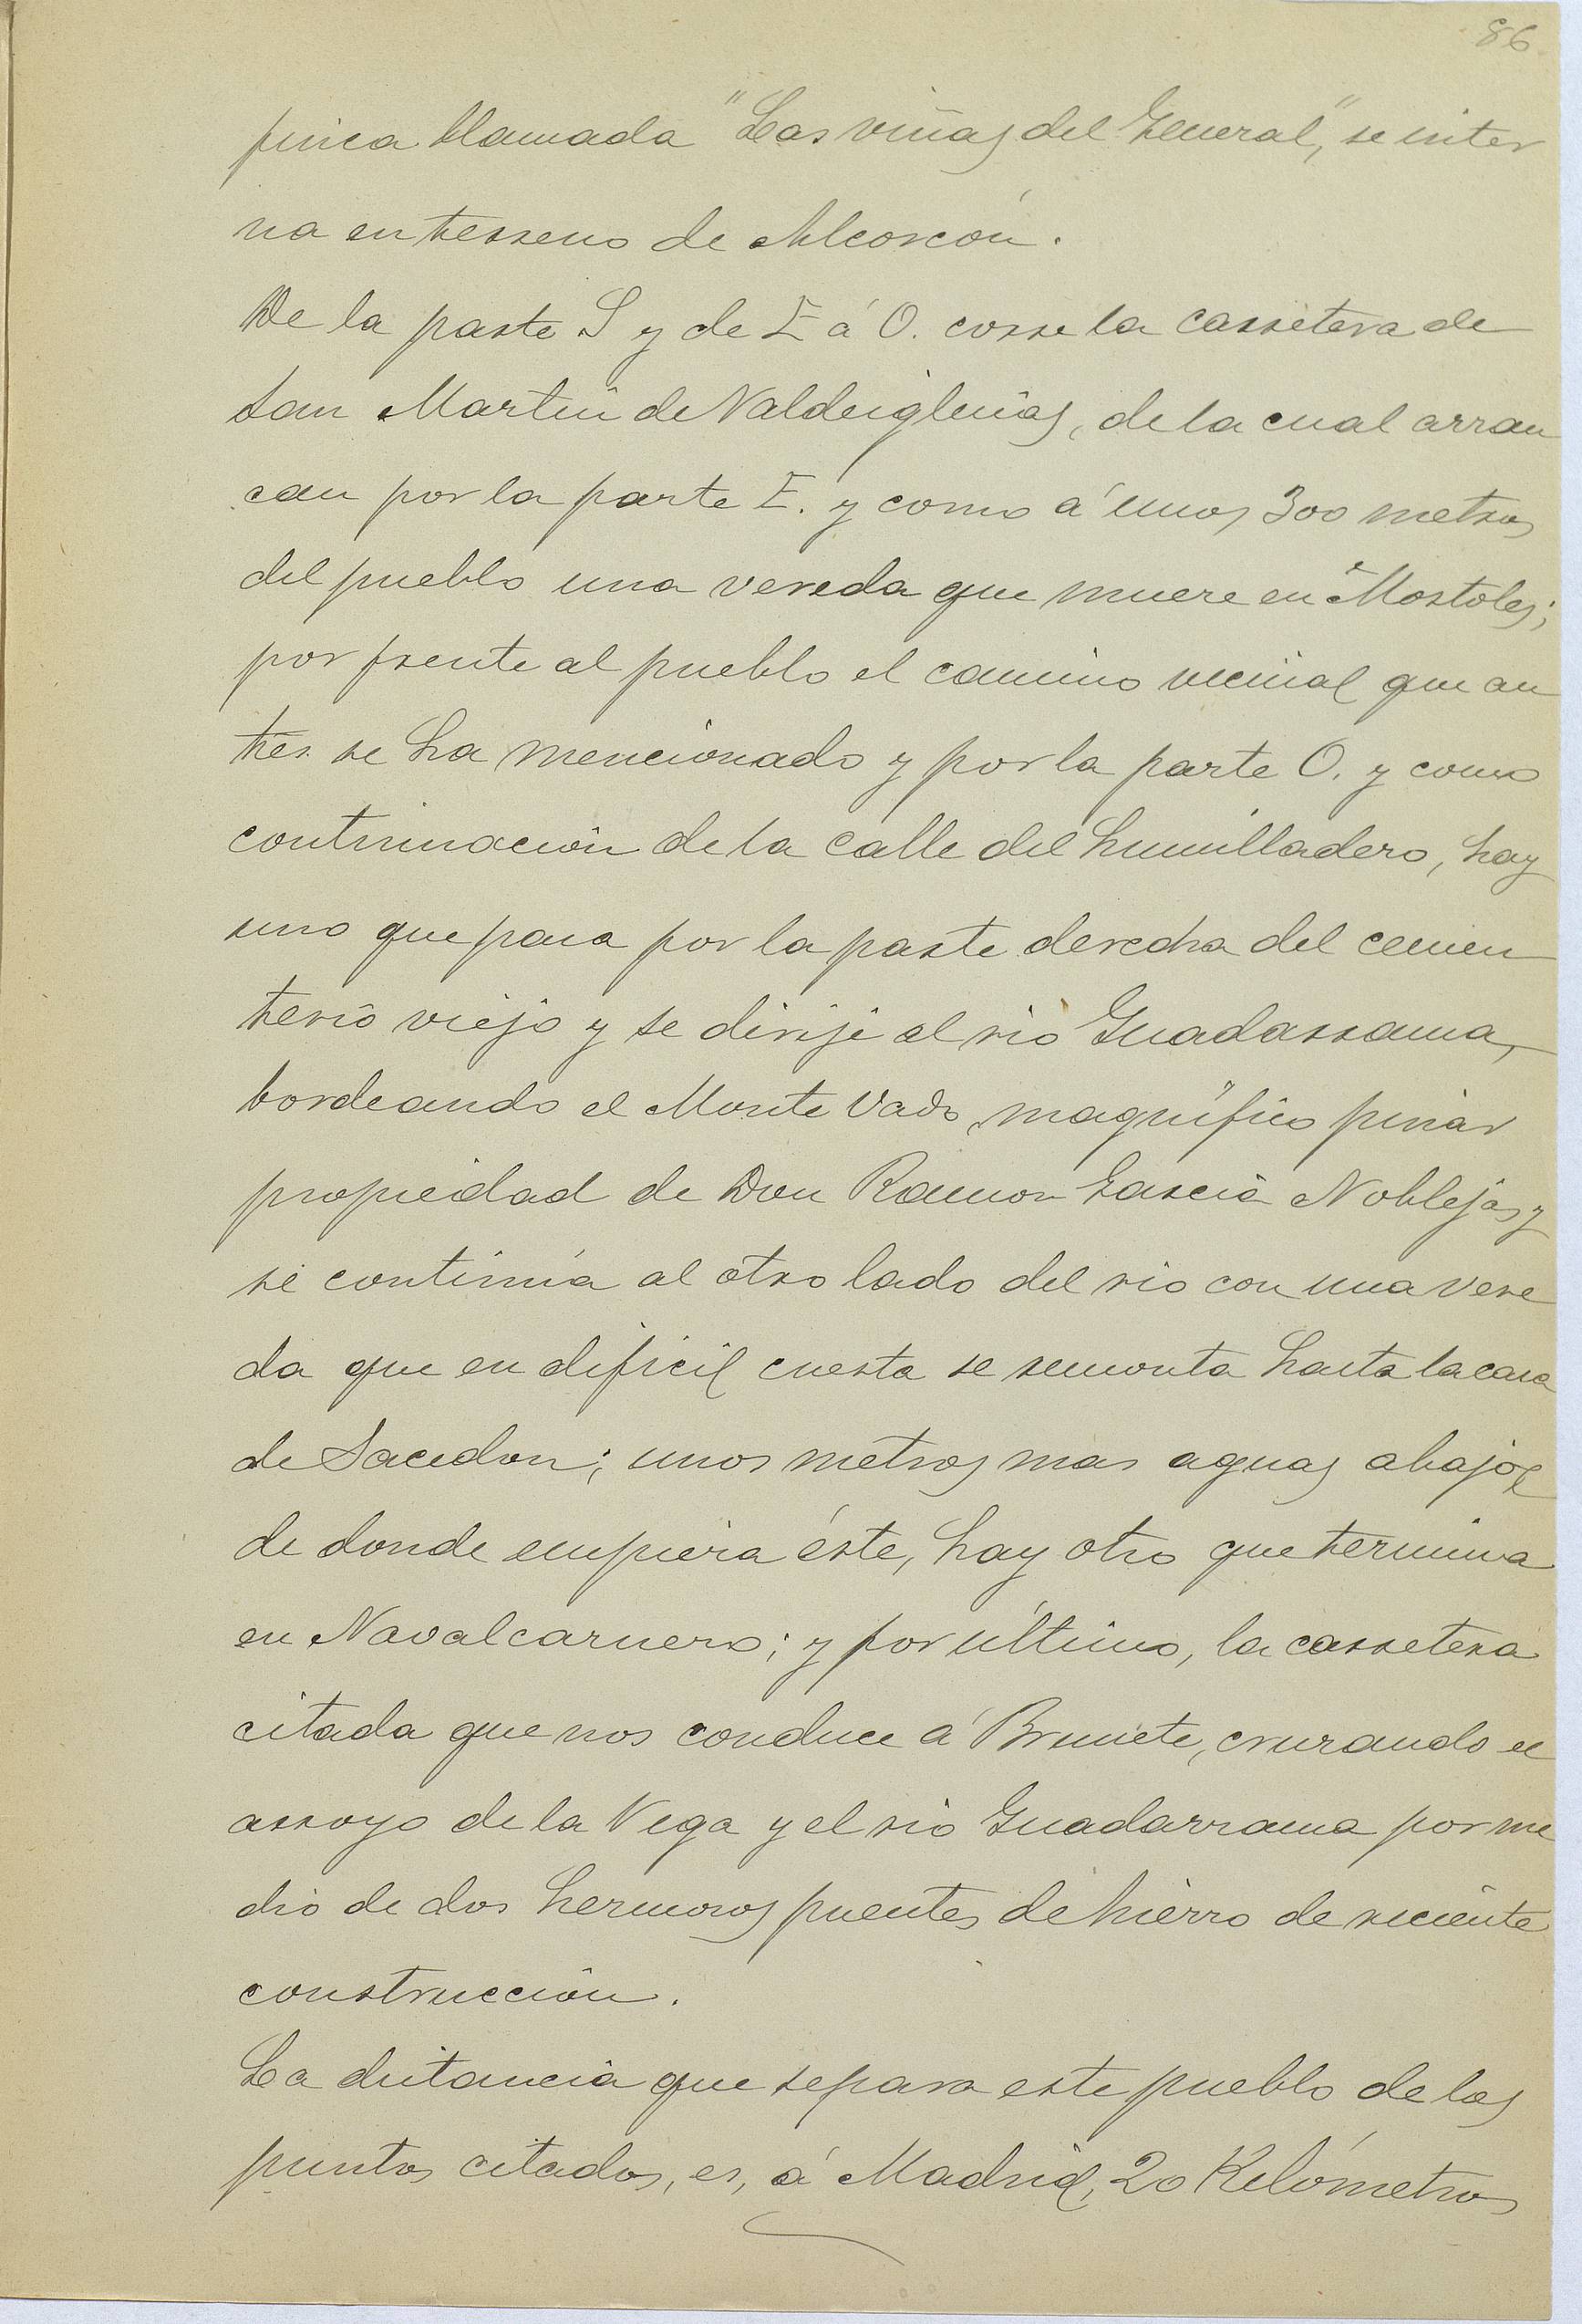 86
finca llamada "Las viñas del General", se inter
na en terreno de Alcorcón.
De la parte S y de E á O. corre la carretera de
San Martin de Valdeiglesias, de la cual arran
can por la parte E. y como á unos 300 metros
del pueblo una vereda que muere en Mostoles;
por frente al pueblo el camino vecinal que an
tes se ha mencionado y por la parte O. y como
continuación de la calle del humilladero, hay
uno que pasa por la parte derecha del cemen
terio viejo y se dirije al rio Guadarrama,
bordeando el Monte Vado, magnífico pinar
propiedad de Don Ramon Garcia Noblejas y
se continúa al otro lado del rio con una vere
da que en dificil cuesta se remonta hasta la casa
de Sacedon; unos metros mas aguas abajo
de donde empieza éste, hay otro que termina
en Navalcarnero; y por último, la carretera
citada que nos conduce á Brunete, cruzando el
arroyo de la Vega y el rio Guadarrama por me
dio de dos hermosos puentes de hierro de reciente
construcción.
La distancia que separa este pueblo de los
puntos citados, es, á Madrid, 20 Kilómetros